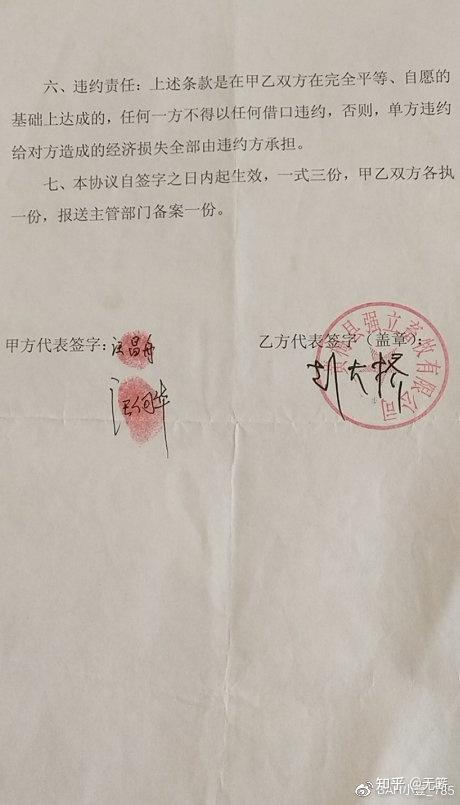 六、违约责任：上述条款是在甲乙双方在完全平等、自愿的
基础上达成的，任何一方不得以任何借口违约，否则，单方违约
给对方造成的经济损失全部由违约方承担。
七、本协议自签字之日内起生效，一式三份，甲乙双方各执
一份，报送主管部门备案一份。
甲方代表签字：汪昌舟
乙方代表签字（盖章）：
县强立养殖有限公司
知乎 @无篪